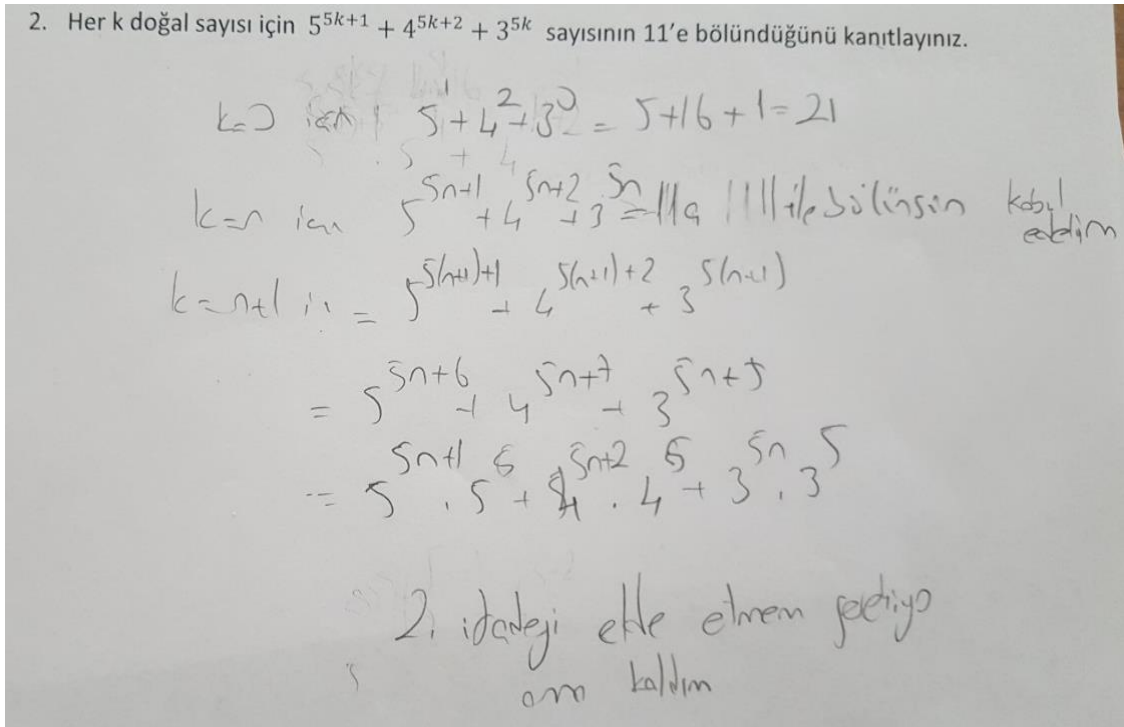 2. Her k doğal sayısı için 5^{5k+1} + 4^{5k+2} + 3^{5k} sayısının 11'e bölündüğünü kanıtlayınız.
k=0 için 5^1 + 4^2 + 3^0 = 5+16+1=21
k=n için 5^{5n+1} + 4^{5n+2} + 3^{5n} = 11a 11 ile bölünsün kabul edelim
k=n+1 için = 5^{5(n+1)+1} + 4^{5(n+1)+2} + 3^{5(n+1)}
= 5^{5n+6} + 4^{5n+7} + 3^{5n+5}
= 5^{5n+1}.5^5 + 4^{5n+2}.4^5 + 3^{5n}.3^5
2. ifadeyi elde etmem gerekiyo
am kaldım